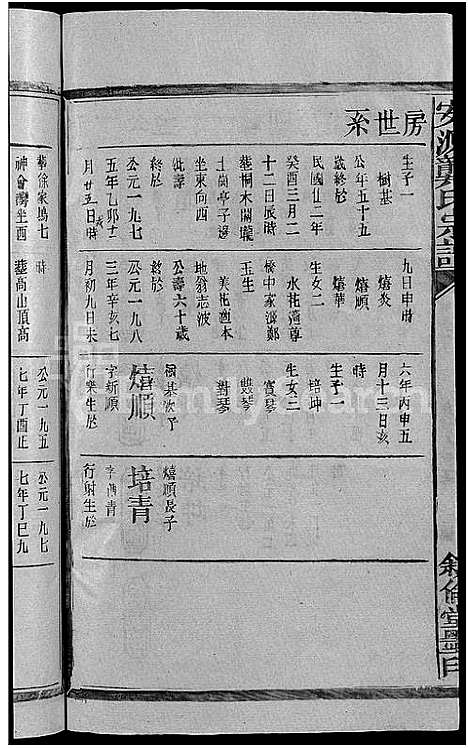 房世系
生子一
樹基
公年五十五
歲終於
民國廿二年
癸酉三月二
十二日辰時
葬桐木關隴
土崗亭子邊
坐東向西
公壽
終於
公元一九七
五年乙卯十二
月廿五日時
九日申時
熺炎
熺順
熺華
生女二
水花適尊
橋中家源鄭
玉生
美花適本
地翁志波
公壽六十歲
終於
公元一九八
三年辛亥七
月初九日未
六年丙申五
月十三日亥
時
生子
培坤
生女三
寶琴
雙琴
對琴
樹基次子
熺順
字新順
行樂生於
熺順長子
培青
字酉青
行射生於
葬徐家塢七
神會灣坐酉
時
葬高山頂高
公元一九五
七年丁酉正
公元一九七
七年丁巳九
戴氏宗譜